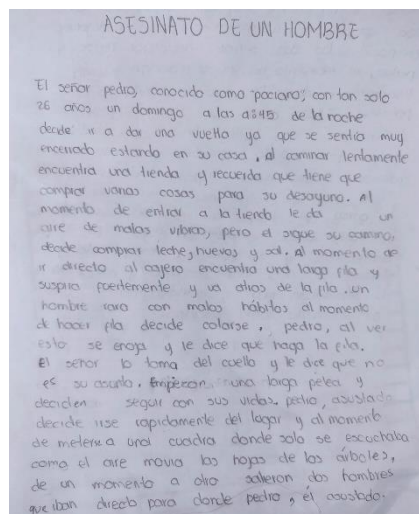 ASESINATO DE UN HOMBRE
El señor pedro, conocido como "paciano", con tan solo
26 años un domingo a las 9:45 de la noche
decide ir a dar una vuelta ya que se sentia muy
encerrado estando en su casa, al caminar lentamente
encuentra una tienda y recuerda que tiene que
comprar varias cosas para su desayuno. Al
momento de entrar a la tienda le da un
aire de malas vibras, pero el sigue su camino,
decide comprar leche, huevos y sal. Al momento de
ir directo al cajero encuentra una larga fila y
suspira fuertemente y va atras de la fila. un
hombre raro con malos hábitos al momento
de hacer fila decide colarse, pedro, al ver
esto se enoja y le dice que haga la fila.
El señor lo toma del cuello y le dice que no
es su asunto. Empiezan una larga pelea y
deciden seguir con sus vidas. pedro, asustado
decide irse rapidamente del lugar y al momento
de meterse a una cuadra donde solo se escuchaba
como el aire movia las hojas de los árboles,
de un momento a otro salieron dos hombres
que iban directo para donde pedro, él asustado.